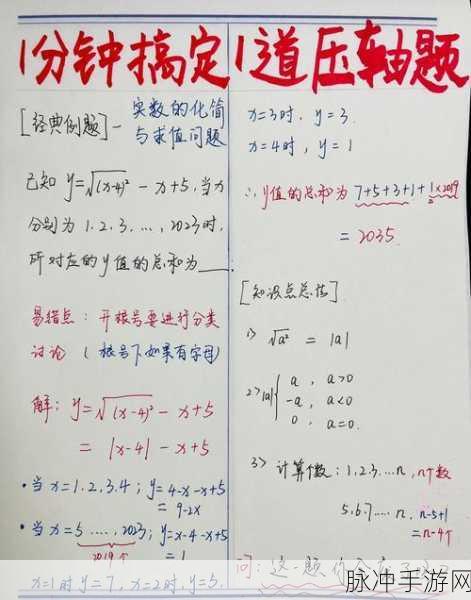 1分钟搞定1道压轴题
[经典例题]—实数的化简
与求值问题
已知 y=√(x-4)² - x+5, 当x
分别为 1.2.3. …, 2023时,
所对应的y值的总和为____.
易错点: 开根号要进行分类
讨论 ( 根号下如果有字母)
解: y=√(x-4)² - x+5
= |x-4| - x+5
• 当 x=1.2.3.4; y=4-x-x+5
= 9-2x
• 当 x=5 …., 2023; y=x-4-x+5
2019个
= 1
x=1时 y=7, x=2时, y=5.
x=3时. y=3.
x=4时, y=1
∴ y值的总和为 7+5+3+1+1×2019
= 2035.
[知识点总结]
1> √a² = |a|
2> |a| { a , a>0
-a , a<0
0 , a=0.
3> 计算个数: 1.2.3…n , n个数
5.6.7….n. n-5+1
=n-4个
问: 这一题你会
脉冲手游网